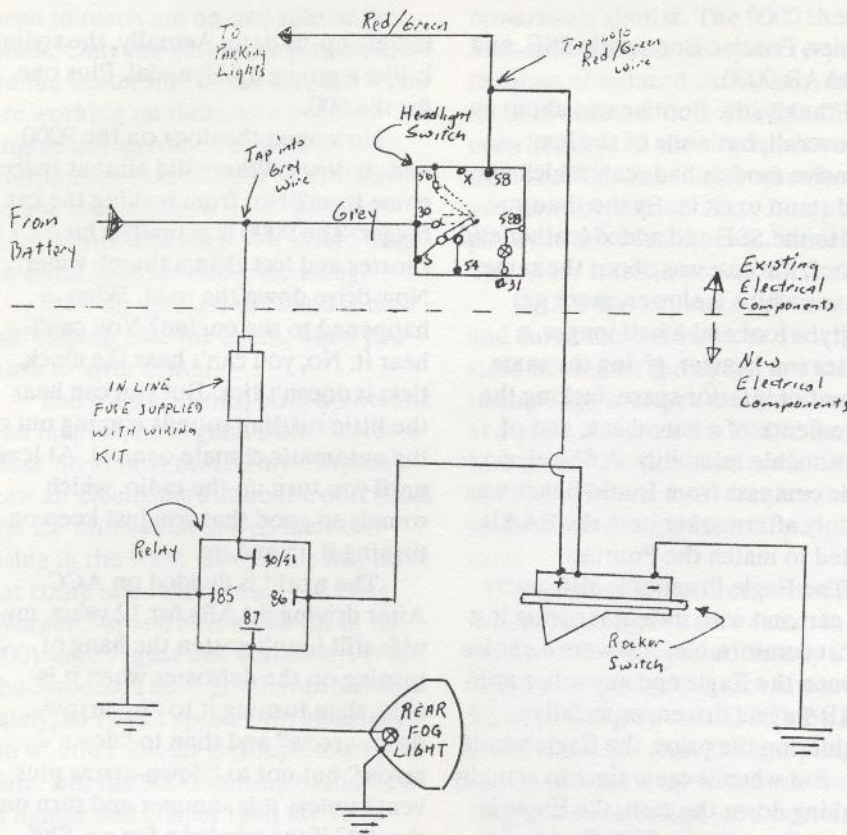 TO
Parking
Lights
Red/Green
Tap into
Red/Green
Wire
Headlight
Switch
Tap into
Grey
Wire
56
X
58
From
Battery
Grey
30
58B
54
31
Existing
Electrical
Components
New
Electrical
Components
IN LINE
FUSE SUPPLIED
WITH WIRING
KIT
Relay
30/51
85
86
87
+
Rocker
Switch
REAR
FOG
LIGHT